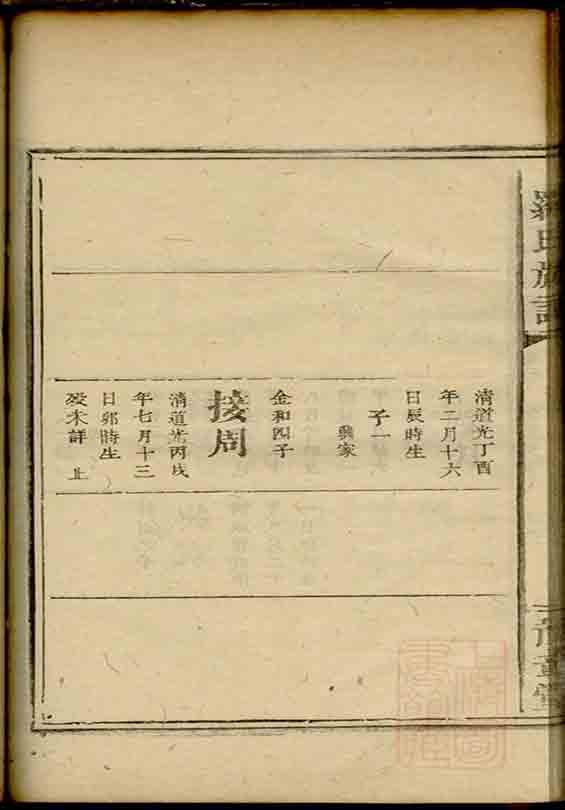 羅氏族譜
清道光丁酉
年二月十六
日辰時生
子一
興家
金和四子
接周
清道光丙戌
年七月十三
日卯時生
歿未詳 止